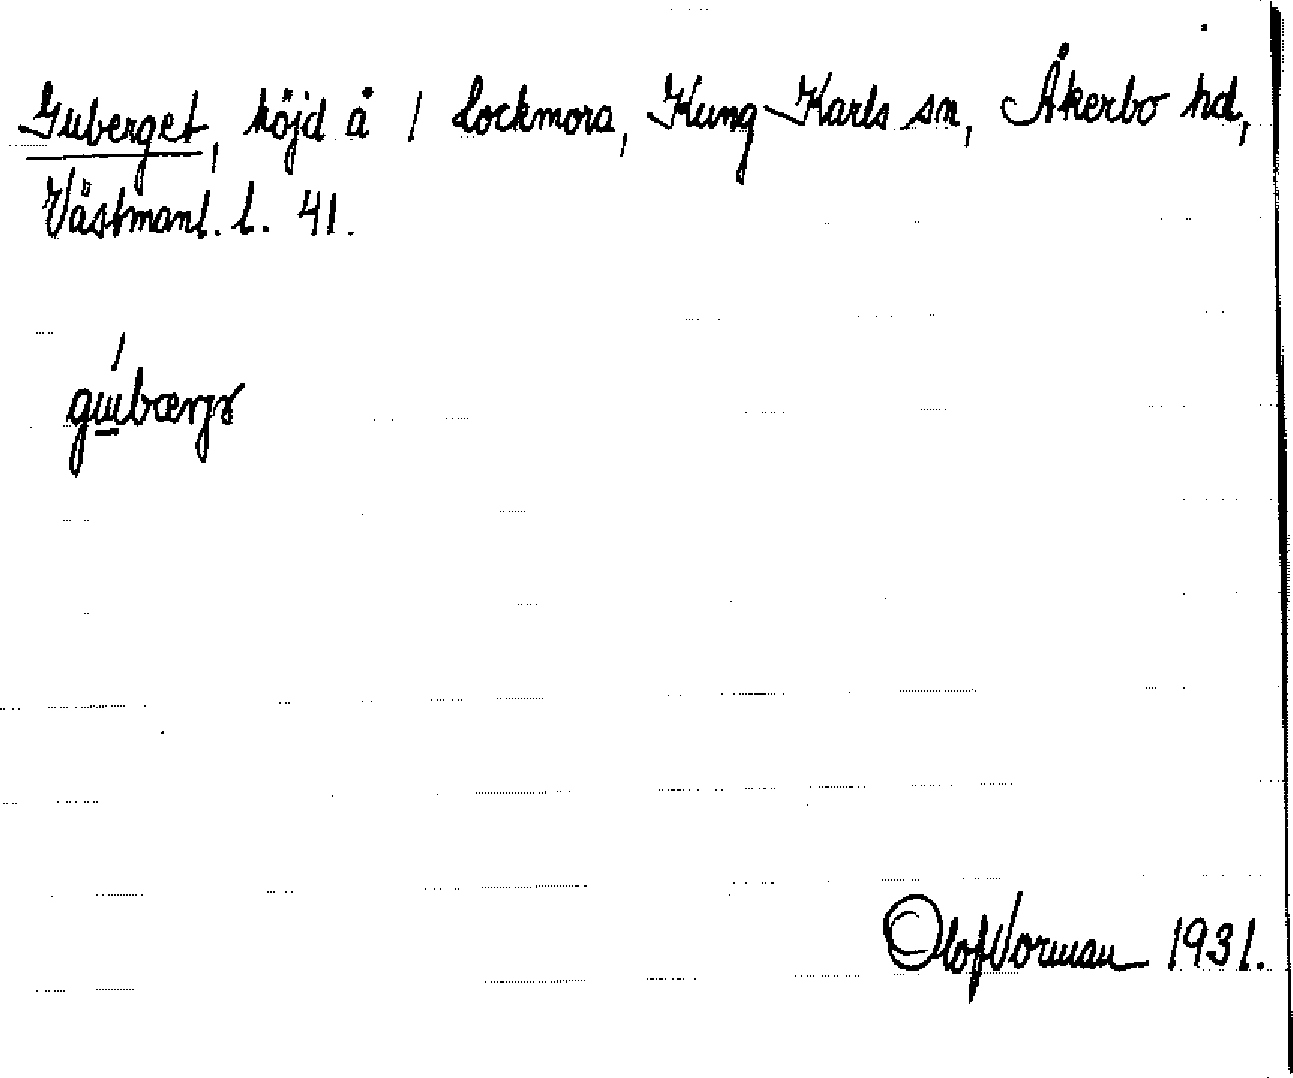 Guberget, höjd å 1 Lockmora, Kung-Karls sn, Åkerbo hd,
Västmanl. l. 41.
Olof Vorman 1931.